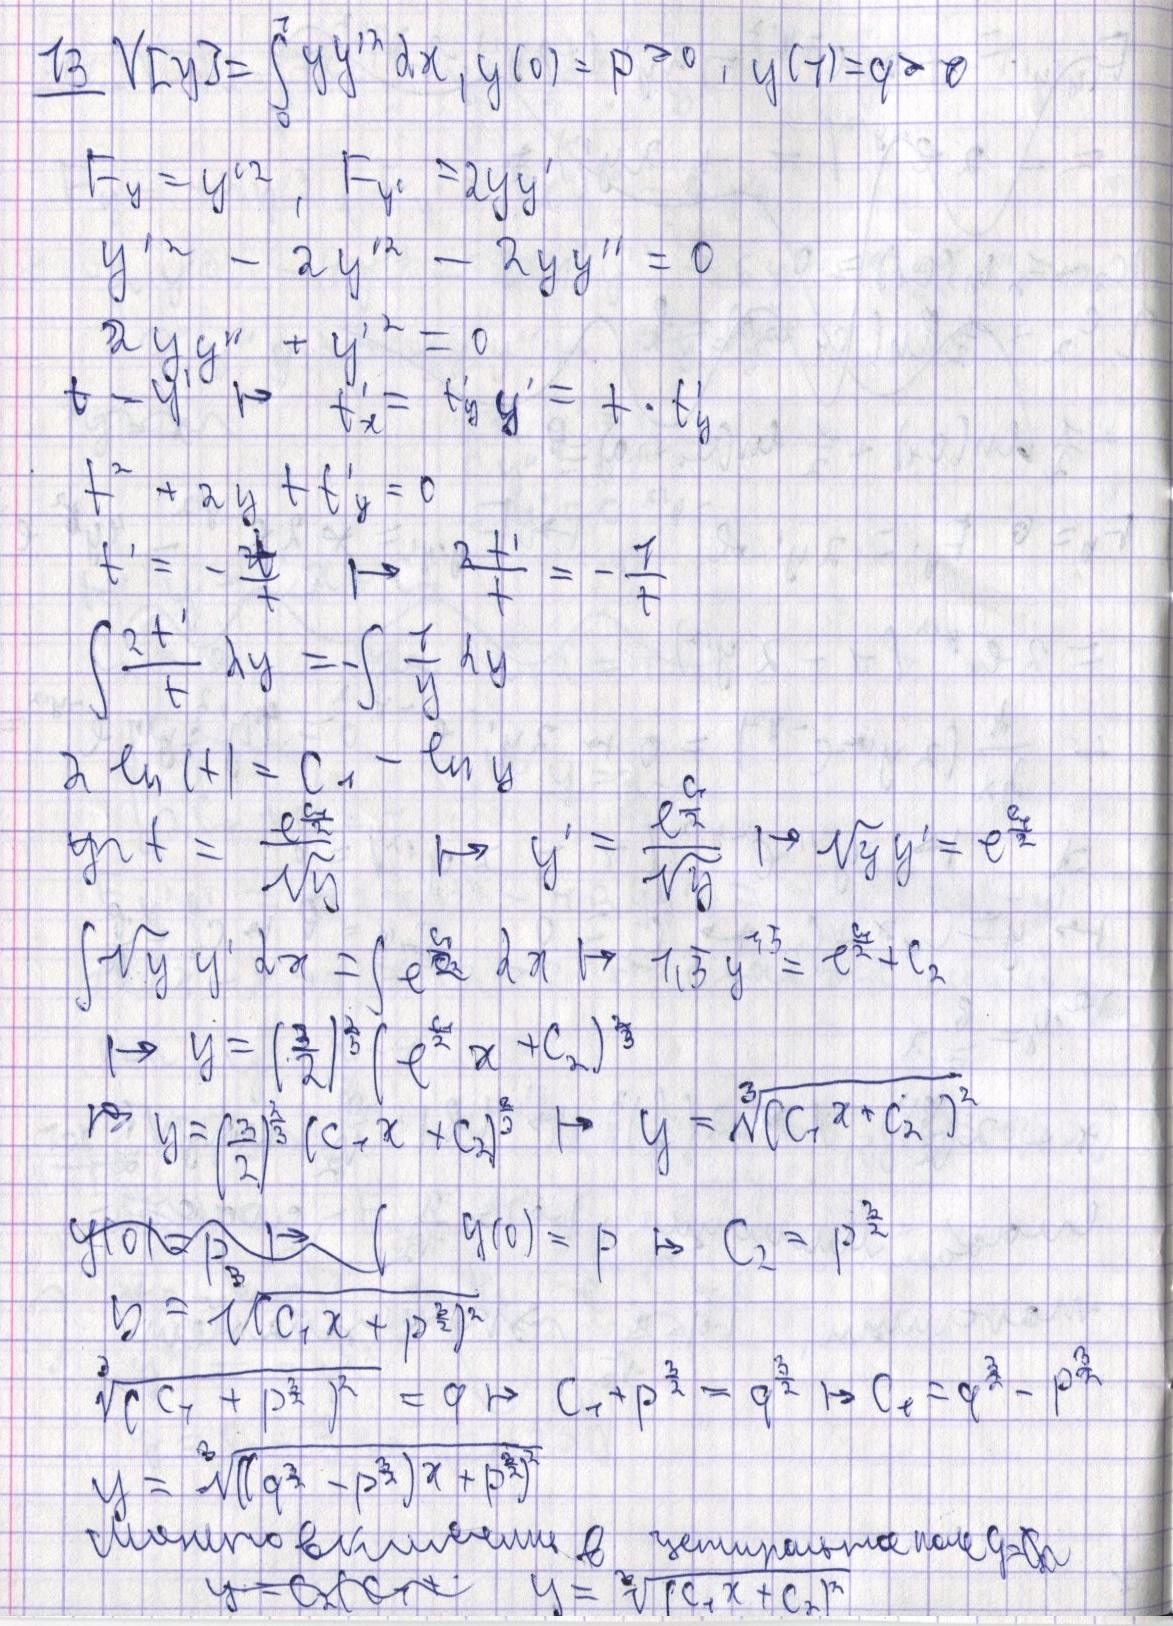 13 V[y] = ∫₀¹ yy'² dx, y(0) = p > 0, y(1) = q > 0
F_y = y'², F_y' = 2yy'
y'² - 2y'² - 2yy'' = 0
2yy'' + y'² = 0
t - y' ↦ t'_x = t'_y y' = t · t'_y
t² + 2y t t'_y = 0
t' = - ↦ 2t'/t = - 1/t
∫ 2t'/t dy = -∫ 1/y dy
2 ln|t| = C₁ - ln y
t = e^(C₁/2)/√y ↦ y' = e^(C₁/2)/√y ↦ √y y' = e^(C₁/2)
∫ √y y' dx = ∫ e^(C₁/2) dx ↦ 1,5 y^(1,5) = e^(C₁/2) + C₂
↦ y = (3/2)^(2/3) (e^(C₁/2) x + C₂)^(2/3)
↦ y = (3/2)^(2/3) (C₁x + C₂)^(2/3) ↦ y = ∛((C₁x + C₂)²)
y(0) = p ↦ ( y(0) = p ↦ C₂ = p^(3/2)
y = ∛((C₁x + p^(3/2))²)
∛((C₁ + p^(3/2))²) = q ↦ C₁ + p^(3/2) = q^(3/2) ↦ C₁ = q^(3/2) - p^(3/2)
y = ∛(((q^(3/2) - p^(3/2))x + p^(3/2))²)
в центральное поле
y = C₂(C₁ + y = ∛((C₁x + C₂)²)